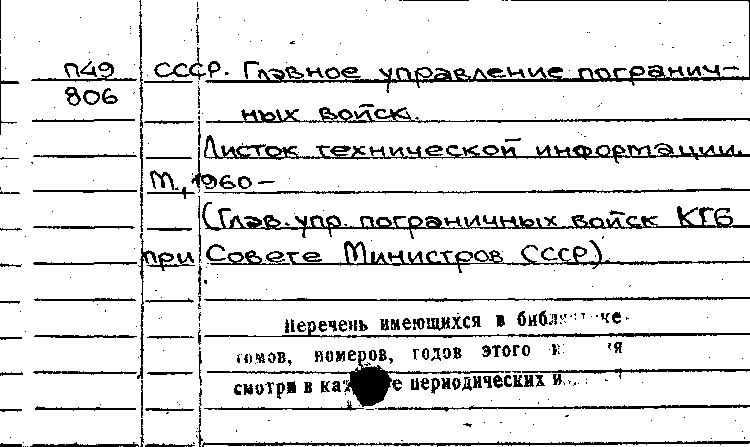 П49 СССР. Главное управление погранич-
806 ных войск.
Листок технической информации.
М., 1960 –
(Глав. упр. пограничных войск КГБ
при Совете Министров СССР).
Перечень имеющихся в
томов, номеров, годов этого
смотри в периодических